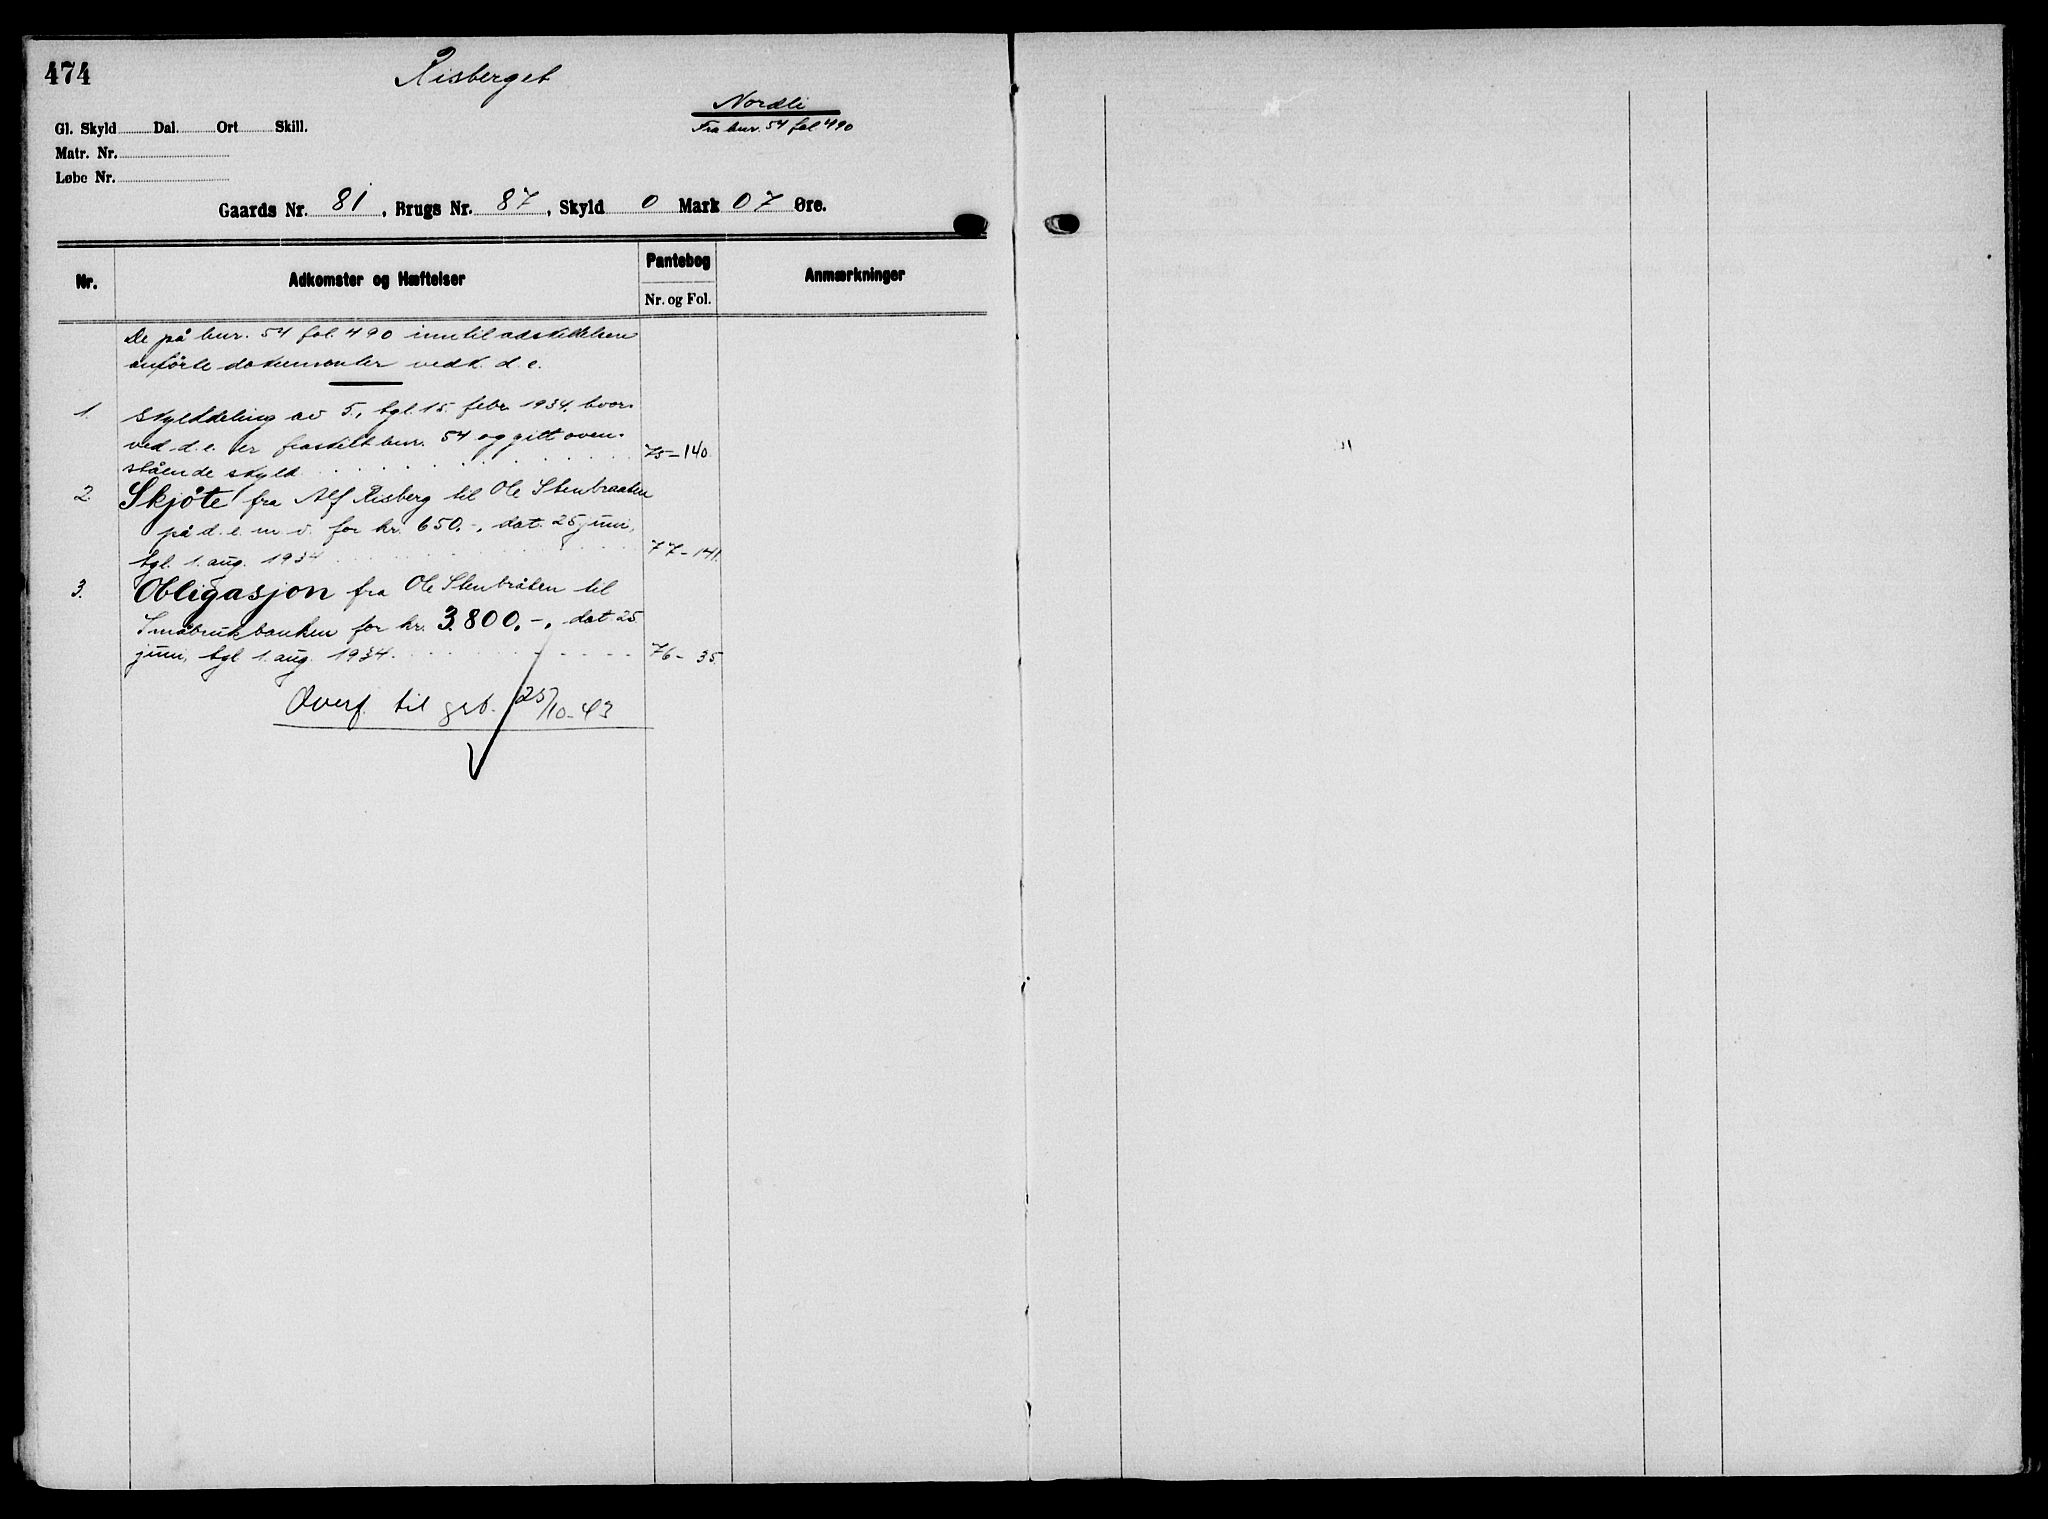 474
Risberget
Nordli
Fra bnr. 54 fol 490
Gl. Skyld Dal. Ort Skill.
Matr. Nr.
Løbe Nr.
Gaards Nr. 81, Brugs Nr. 87, Skyld 0 Mark 07 Øre.
Nr. Adkomster og Hæftelser Pantebog Nr. og Fol. Anmærkninger
De på bnr. 54 fol. 490 inntil adskillelsen
anførte dokumenter vedk. d. e.
1. Skylddeling av 5., tgl. 15. febr. 1934, hvor-
ved d. e. er fraskilt bnr. 54 og gitt oven-
stående skyld. 75-140.
2. Skjøte fra Alf Risberg til Ole Stenbraaten
på d. e. m. v. for kr. 650.-, dat. 25 juni,
tgl. 1. aug. 1934 77-141.
3. Obligasjon fra Ole Stenbråten til
Småbrukbanken for kr. 3.800.-, dat 25
juni, tgl 1. aug. 1934. 76-35.
Overf. til grb. 25/10-43